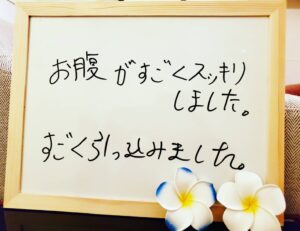 お腹がすごくスッキリ
しました。
すごく引っ込みました。